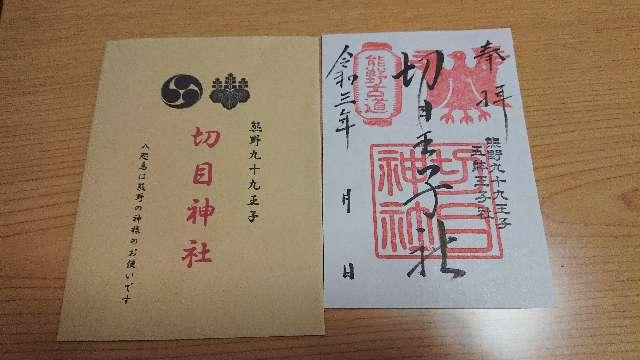 熊野九十九王子
切目神社
八咫烏は熊野の神様のお使いです
奉拝
熊野九十九王子
五体王子社
切目王子社
切目神社
熊野古道
令和三年 月 日